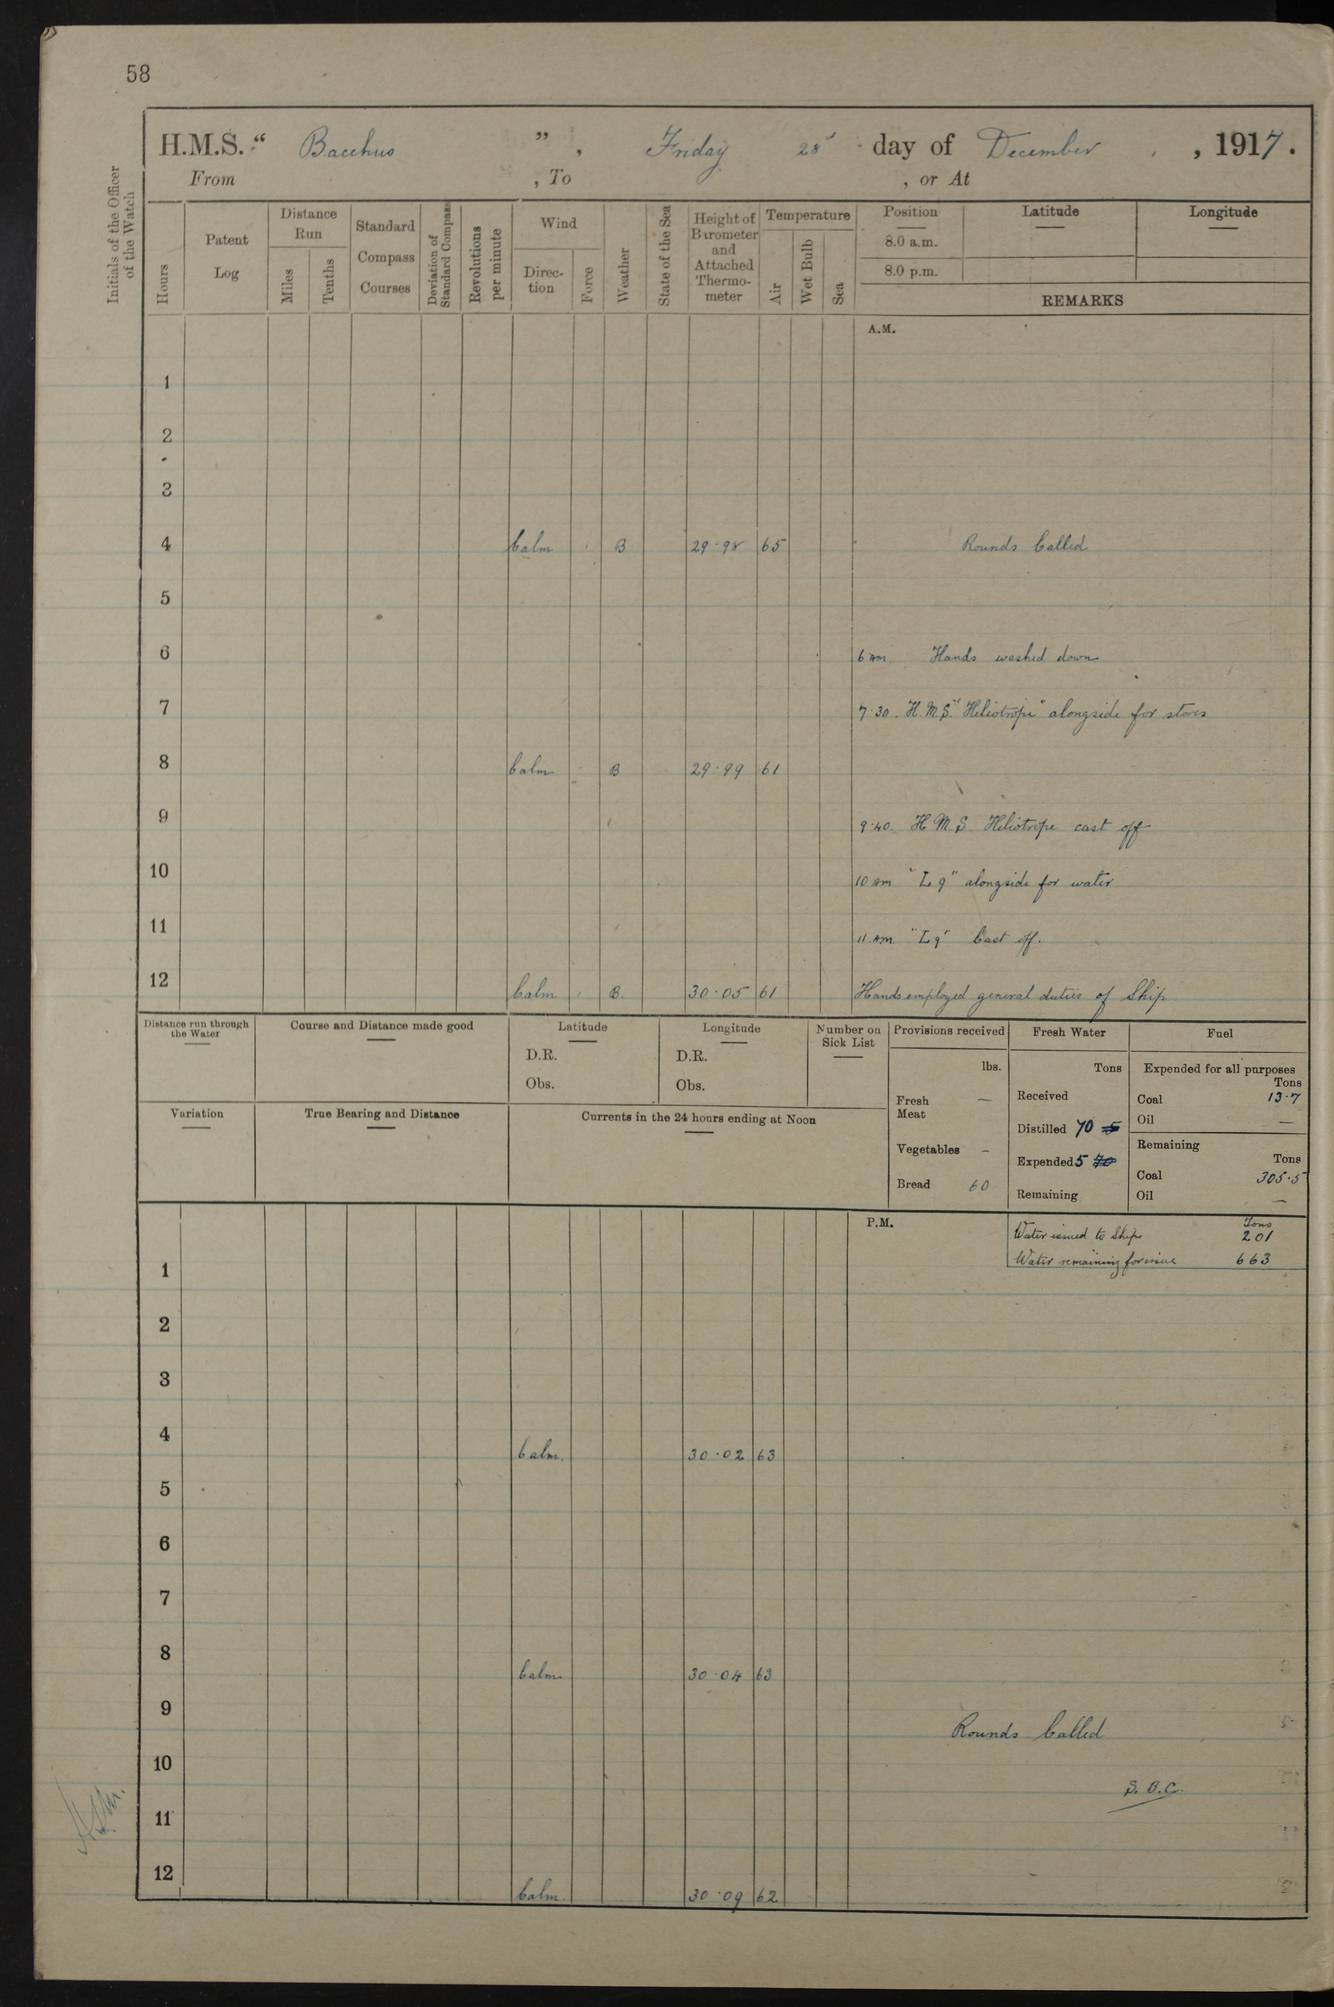 58
H.M.S. “ Bacchus ” , Friday 28 day of December , 1917.
From , To , or At
Initials of the Officer of the Watch
Hours
Patent Log
Distance Run
Miles
Tenths
Standard Compass Courses
Deviation of Standard Compass
Revolutions per minute
Wind
Direc-tion
Force
Weather
State of the Sea
Height of Barometer and Attached Thermo-meter
Temperature
Air
Wet Bulb
Sea
Position Latitude Longitude
8.0 a.m.
8.0 p.m.
REMARKS
A.M.
1
2
3
4 Calm B 29·98 65 Rounds Called
5
6 6 am Hands washed down
7 7·30. H.M.S. "Heliotrope" alongside for stores
8 Calm B 29·99 61
9 9·40. H.M.S. Heliotrope cast off
10 10 am "L 9" alongside for water
11 11 am "L 9" Cast off.
12 Calm B. 30·05 61 Hands employed general duties of Ship
Distance run through the Water
Course and Distance made good
Latitude
D.R.
Obs.
Longitude
D.R.
Obs.
Number on Sick List
Variation
True Bearing and Distance
Currents in the 24 hours ending at Noon
Provisions received
lbs.
Fresh Meat —
Vegetables –
Bread 60
Fresh Water
Tons
Received
Distilled 70 5
Expended 5 70
Remaining
Fuel
Expended for all purposes
Tons
Coal 13·7
Oil —
Remaining
Tons
Coal 305·5
Oil —
P.M.
Tons
Water issued to Ship 201
Water remaining for issue 663
1
2
3
4 Calm. 30·02 63
5
6
7
8 Calm 30·04 63
9 Rounds Called
10 S.O.C.
11
12 Calm 30·09 62